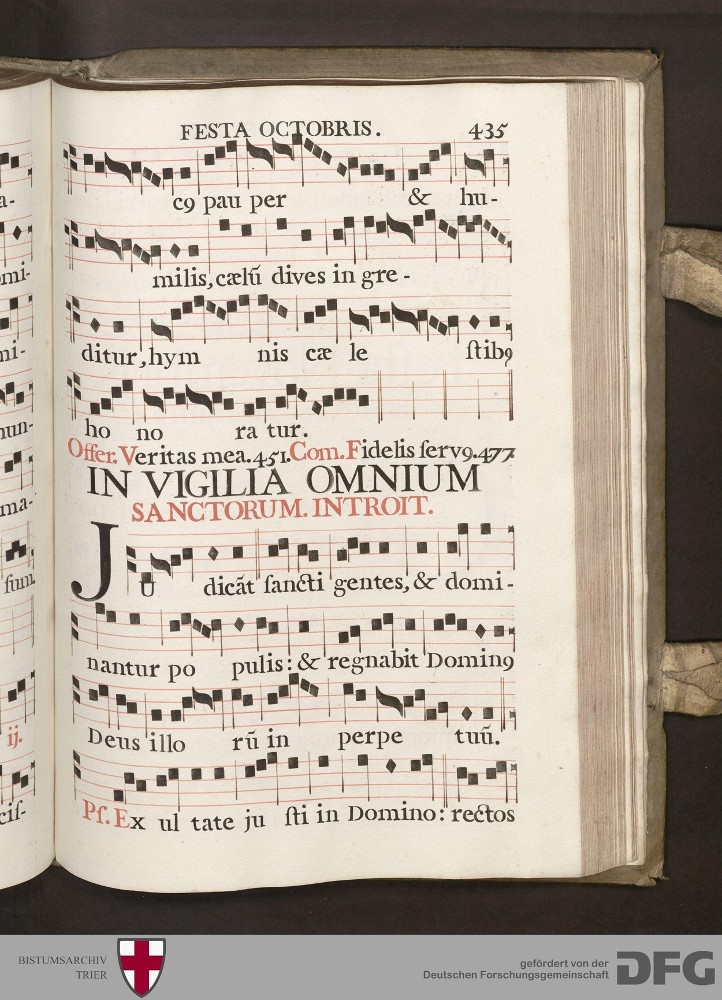 FESTA OCTOBRIS. 435
cꝯ pau per & hu-
milis, cælũ dives in gre-
ditur, hym nis cæ le ſtibꝯ
ho no ra tur.
Offer. Veritas mea. 451. Com. Fidelis ſervꝯ. 477
IN VIGILIA OMNIUM
SANCTORUM. INTROIT.
JU dicãt ſancti gentes, & domi-
nantur po pulis: & regnabit Dominꝯ
Deus illo rũ in perpe tuũ.
Pſ. Ex ul tate ju ſti in Domino: rectos
a-
omi-
ni-
nun-
ma-
ſum.
ij.
ciſ-
BISTUMSARCHIV
TRIER
gefördert von der
Deutschen Forschungsgemeinschaft
DFG